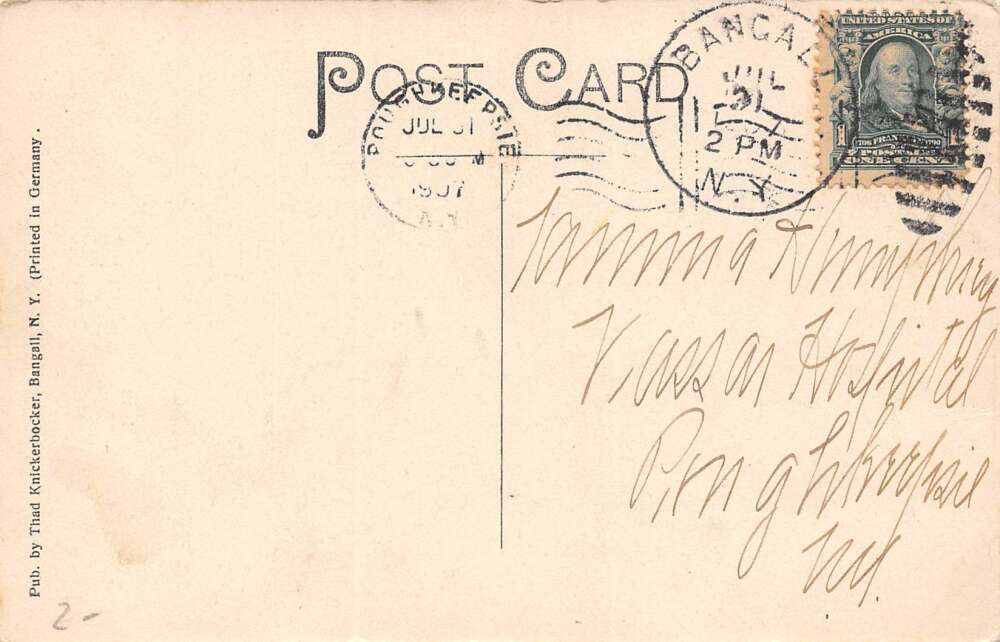 POST CARD
POUGHKEEPSIE
JUL 31
1907
N.Y.
BANGALL
JUL
31
2 PM
N.Y.
UNITED STATES OF
AMERICA
1706 FRANKLIN 1790
POSTAGE
ONE CENT
Humphrey
Vassar Hospital
Poughkeepsie
NY.
Pub. by Thad Knickerbocker, Bangall, N. Y. (Printed in Germany.
2-